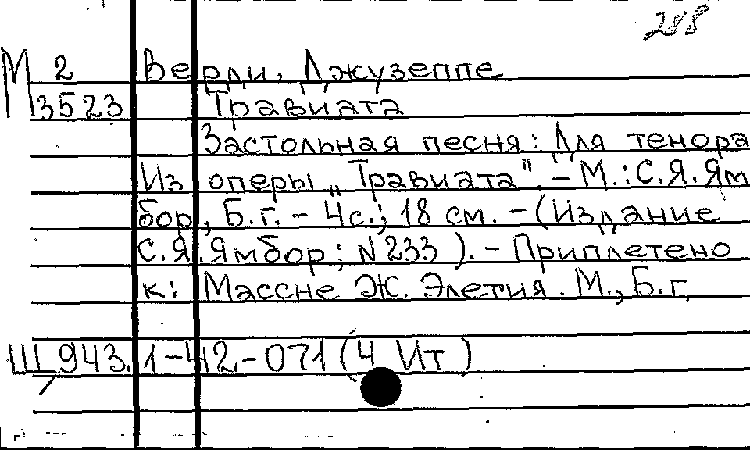 288
М 2 Верди, Джузеппе
3523 Травиата
Застольная песня: Для тенора
Из оперы „Травиата". – М.: С.Я. Ям
бор, Б.г. – 4с.; 18 см. – (Издание
С.Я. Ямбор; N 233). – Приплетено
к: Массне Ж. Элегия. М., Б.г.
Ш 943.1-42-071 (4 Ит)